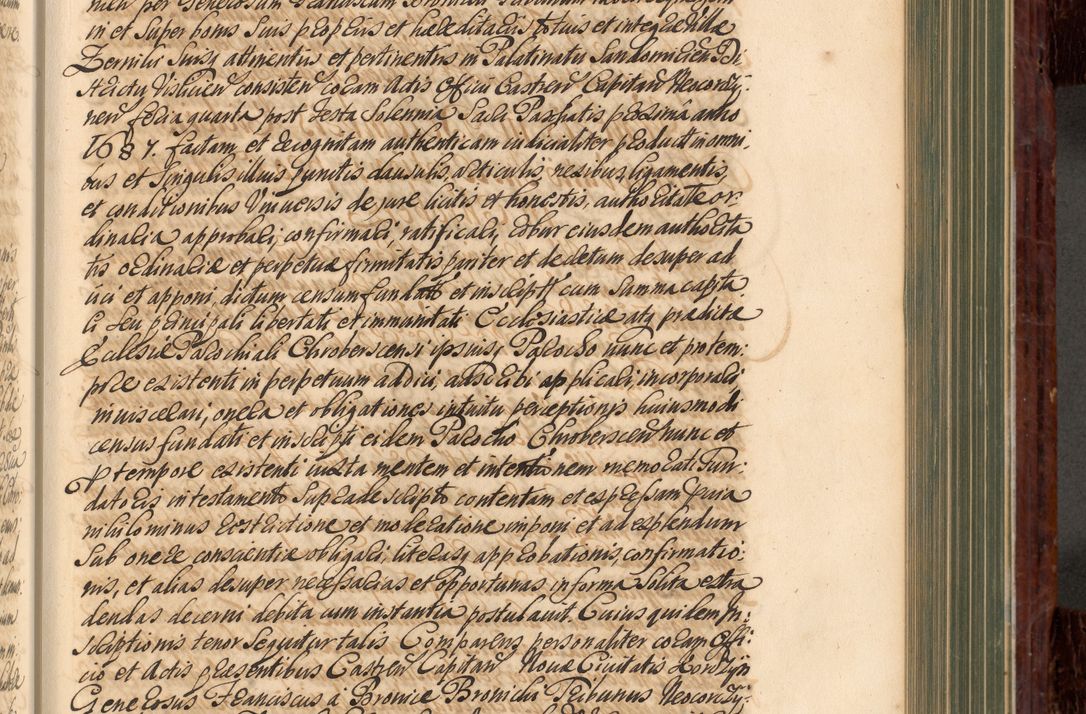 in et super bonis suis propriis et hæreditariis totius et integræ villæ
Zernilis suisq attinentiis et pertinentiis in Palatinatu Sandomirien Di
strictu Vislicien consisten coram Actis Officii Castren Capitan Neocorczy:
nen feria quarta post Festa Solennia Sacri Paschatis proxima anno
1687. factam et recognitam authenticam iudicialiter product in omni:
bus et singulis illius punctis clausulis, articulis, nexibus, ligamentis,
et conditionibus Universis de jure licitis et honestis, authoritate or:
dinaria approbari, confirmari, ratificari, robur eiusdem authorita
tis ordinariæ et perpetuæ firmitatis pariter et decretum desuper ad
iici et apponi, dictum censum fundat et inscript cum Summa capita
li seu principali libertati et immunitati Ecclesiasticæ atq prædictæ
Ecclesiæ Parochiali Chroberscensi ipsiusq Parocho nunc et protem:
pore existenti in perpetuum addici, adscribi applicari, incorporari
inviscerari, onera et obligationes intuitu perceptionis huiusmodi
census fundati et inscripti eidem Parocho Chroberscen nunc et
p tempore existenti iuxta mentem et intentionem memorati Fun:
datoris in testamento supradescripto contentam et expressam
nihilominus restrictione et moderatione imponi et ad explendum
sub onere conscientiæ obligari, literasq approbationis, confirmatio:
nis, et alias desuper necessarias et opportunas in forma solita extra
dendas decerni debita cum instantia postulavit. Cuius quidem In:
scriptionis tenor sequitur talis Comparens personaliter coram Offi:
cio et Actis præsentibus Castren Capitan Novæ Civitatis Korczyn
Generosus Franciscus à Bronice Bronicki Tribunus Neocorczy: